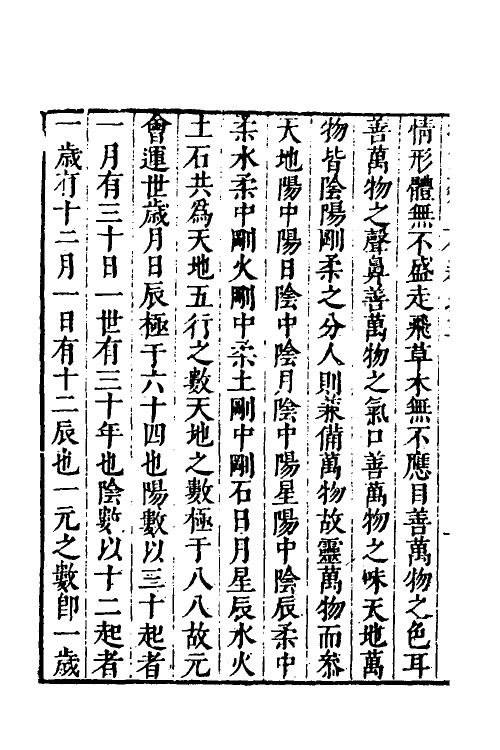 情形體無不盛走飛草木無不應目善萬物之色耳
善萬物之聲鼻善萬物之氣口善萬物之味天地萬
物皆陰陽剛柔之分人則兼備萬物故靈萬物而叅
天地陽中陽日陰中陰月陰中陽星陽中陰辰柔中
柔水柔中剛火剛中柔土剛中剛石日月星辰水火
土石共爲天地五行之數天地之數極于八八故元
會運世歲月日辰極于六十四也陽數以三十起者
一月有三十日一世有三十年也陰數以十二起者
一歲有十二月一日有十二辰也一元之數卽一歲